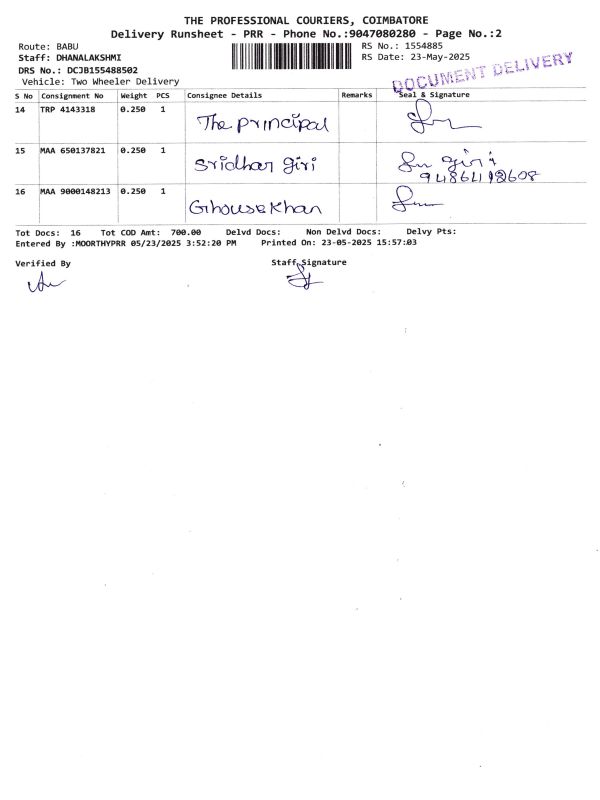 THE PROFESSIONAL COURIERS, COIMBATORE
Delivery Runsheet - PRR - Phone No.:9047080280 - Page No.:2
Route: BABU
RS No.: 1554885
Staff: DHANALAKSHMI
RS Date: 23-May-2025
DRS No.: DCJB155488502
DOCUMENT DELIVERY
Vehicle: Two Wheeler Delivery
S No Consignment No Weight PCS Consignee Details Remarks Seal & Signature
14 TRP 4143318 0.250 1 The principal
15 MAA 650137821 0.250 1 Sridhar giri
16 MAA 9000148213 0.250 1 Ghouse Khan
Tot Docs: 16 Tot COD Amt: 700.00 Delvd Docs: Non Delvd Docs: Delvy Pts:
Entered By :MOORTHYPRR 05/23/2025 3:52:20 PM Printed On: 23-05-2025 15:57:03
Verified By Staff Signature